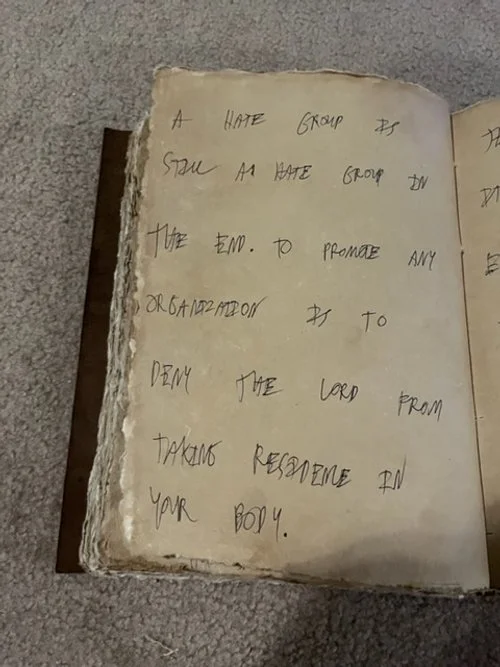 A HATE GROUP IS
STILL A HATE GROUP IN
THE END. TO PROMOTE ANY
ORGANIZATION IS TO
DENY THE LORD FROM
TAKING RESIDENCE IN
YOUR BODY.